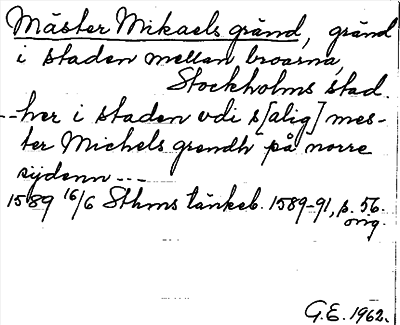 Mäster Mikaels gränd, gränd
i staden mellan broarna,
Stockholms stad.
--her i staden vdi s[alig] mes-
ter Michels grendh på norre
sijdenn ---
1589 16/6 Sthms tänkeb. 1589-91, s. 56.
orig.
G.E. 1962.